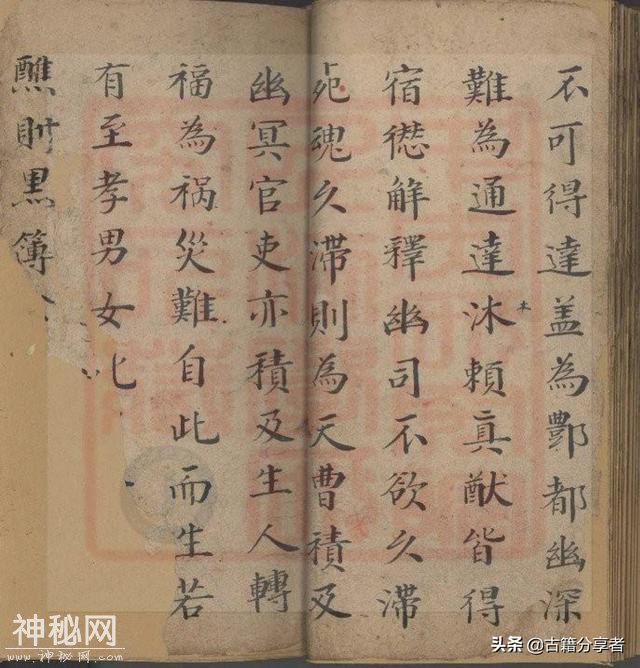 不可得達盖為酆都幽深
難為通達沐頼真猷皆得
木
宿愆解釋幽司不欲久滞
魂久滞則為天曹積及
幽冥官吏亦積及生人轉
福為祸災難自此而生若
有至孝男女
醮則黒簿
神秘网
www.神秘网.com
头条 @古籍分享者